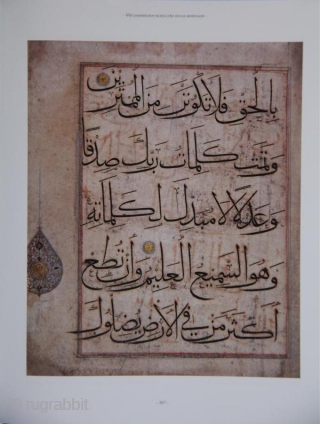 بالحق فلا تكونن من الممترين
وتمت كلمات ربك صدقا
وعدلا لا مبدل لكلماته
وهو السميع العليم وإن تطع
أكثر من في الأرض يضلوك
rugrabbit